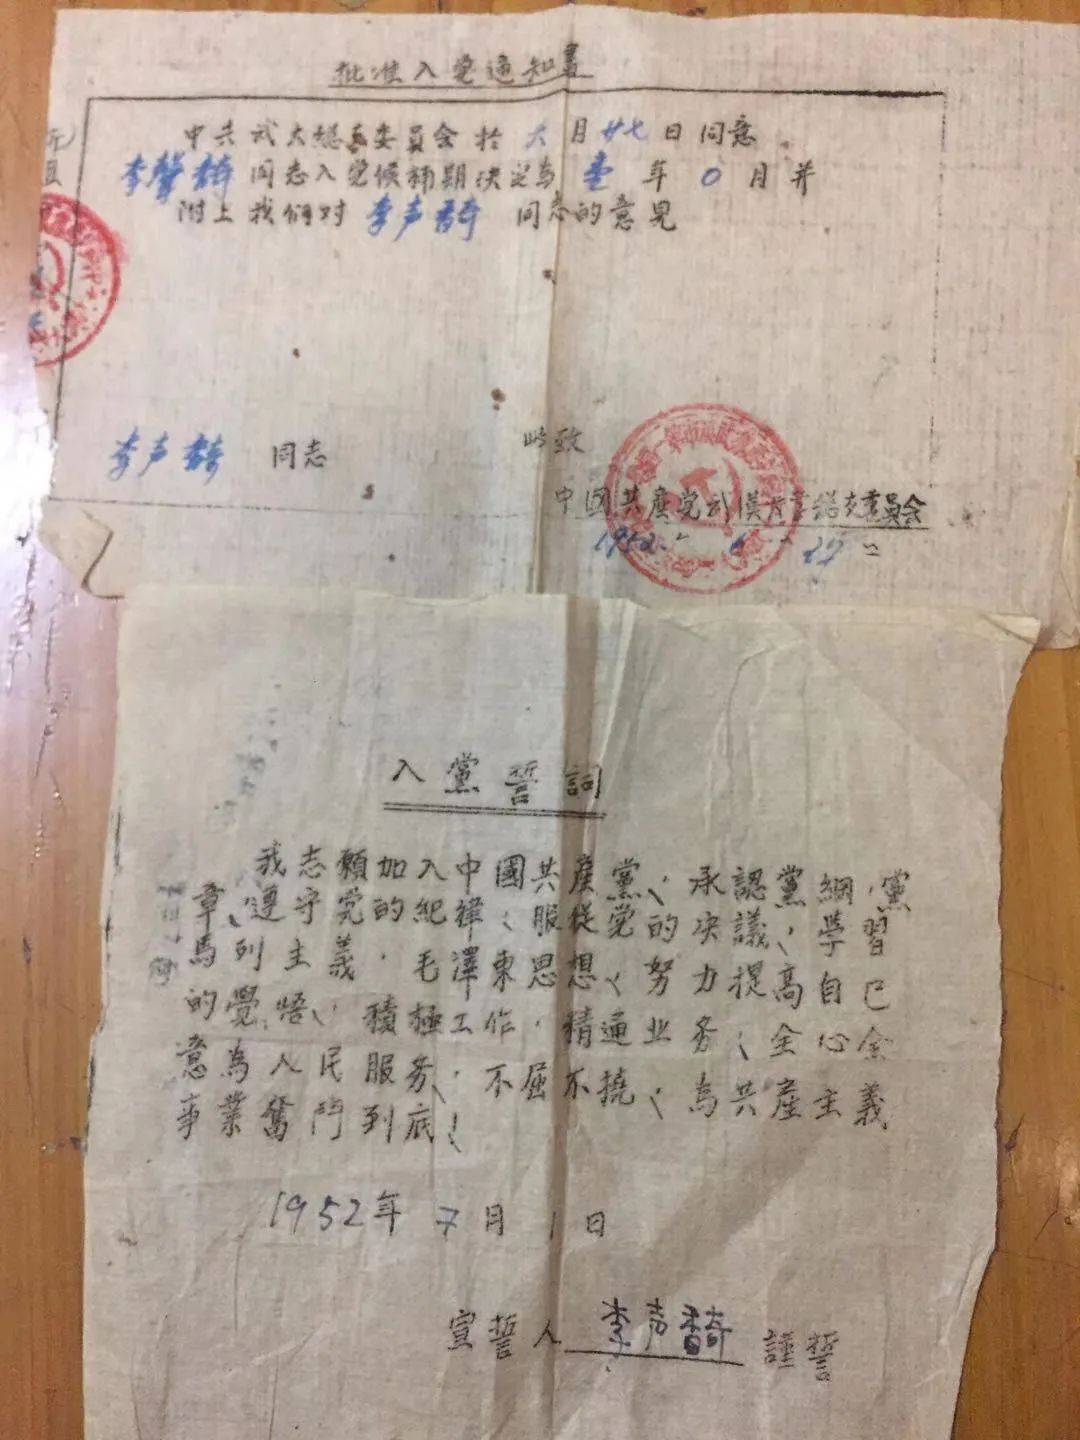 批准入党通知書
中共武大總支委員會於 六 月 廿七 日同意
李聲𬳿 同志入党候補期決定为 壹 年 0 月并
附上我們对 李声𬳿 同志的意見
此致
李声 同志
中國共產党武漢大学總支委員会
1952 6 27
入黨誓詞
我志願加入中國共產黨、承認黨綱、黨
章、遵守党的紀律、服從党的决議、學習
馬列主義、毛澤東思想、努力提高自己
的覺悟、積極工作、精通业务、全心全
意為人民服务、不屈不撓、為共產主義
事業奮鬥到底!
1952年 7月 1日
宣誓人 李声 謹誓